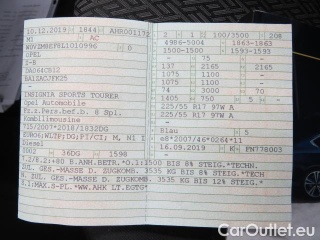 10.12.2019 1844 AHR001172
M1 AC
W0VZM8EP8L1010996 0
OPEL
Z-B
DA04C812
BA11AGJFK25
INSIGNIA SPORTS TOURER
Opel Automobile
Fz.z.Pers.bef.b. 8 Spl.
Kombilimousine
715/2007*2018/1832DG
EURO6;WLTP;DG:PI/CI; M, N1 I
Diesel
0002 36DG 1598
2 1 100/3500 208
4986-5004 1863-1863
1500-1500 1593-1593
- 75 -
137 2165 2165
1075 1100 -
1075 1100 -
74 2 70 3000
1405 750 5 -
225/55 R17 97W A
225/55 R17 97W A
-
Blau 5
e8*2007/46*0264*11
16.09.2019 K EN778003
7.2/8.2:+80 B.ANH.BETR.*O.1:1500 BIS 8% STEIG.*TECHN.
ZUL. GES.-MASSE D. ZUGKOMB. 3535 KG BIS 8% STEIG.*TECH
N. ZUL. GES.-MASSE D. ZUGKOMB. 3535 KG BIS 12% STEIG.*
T.1:MAX.S-PL.*WW.AHK LT.EGTG*
CarOutlet.eu